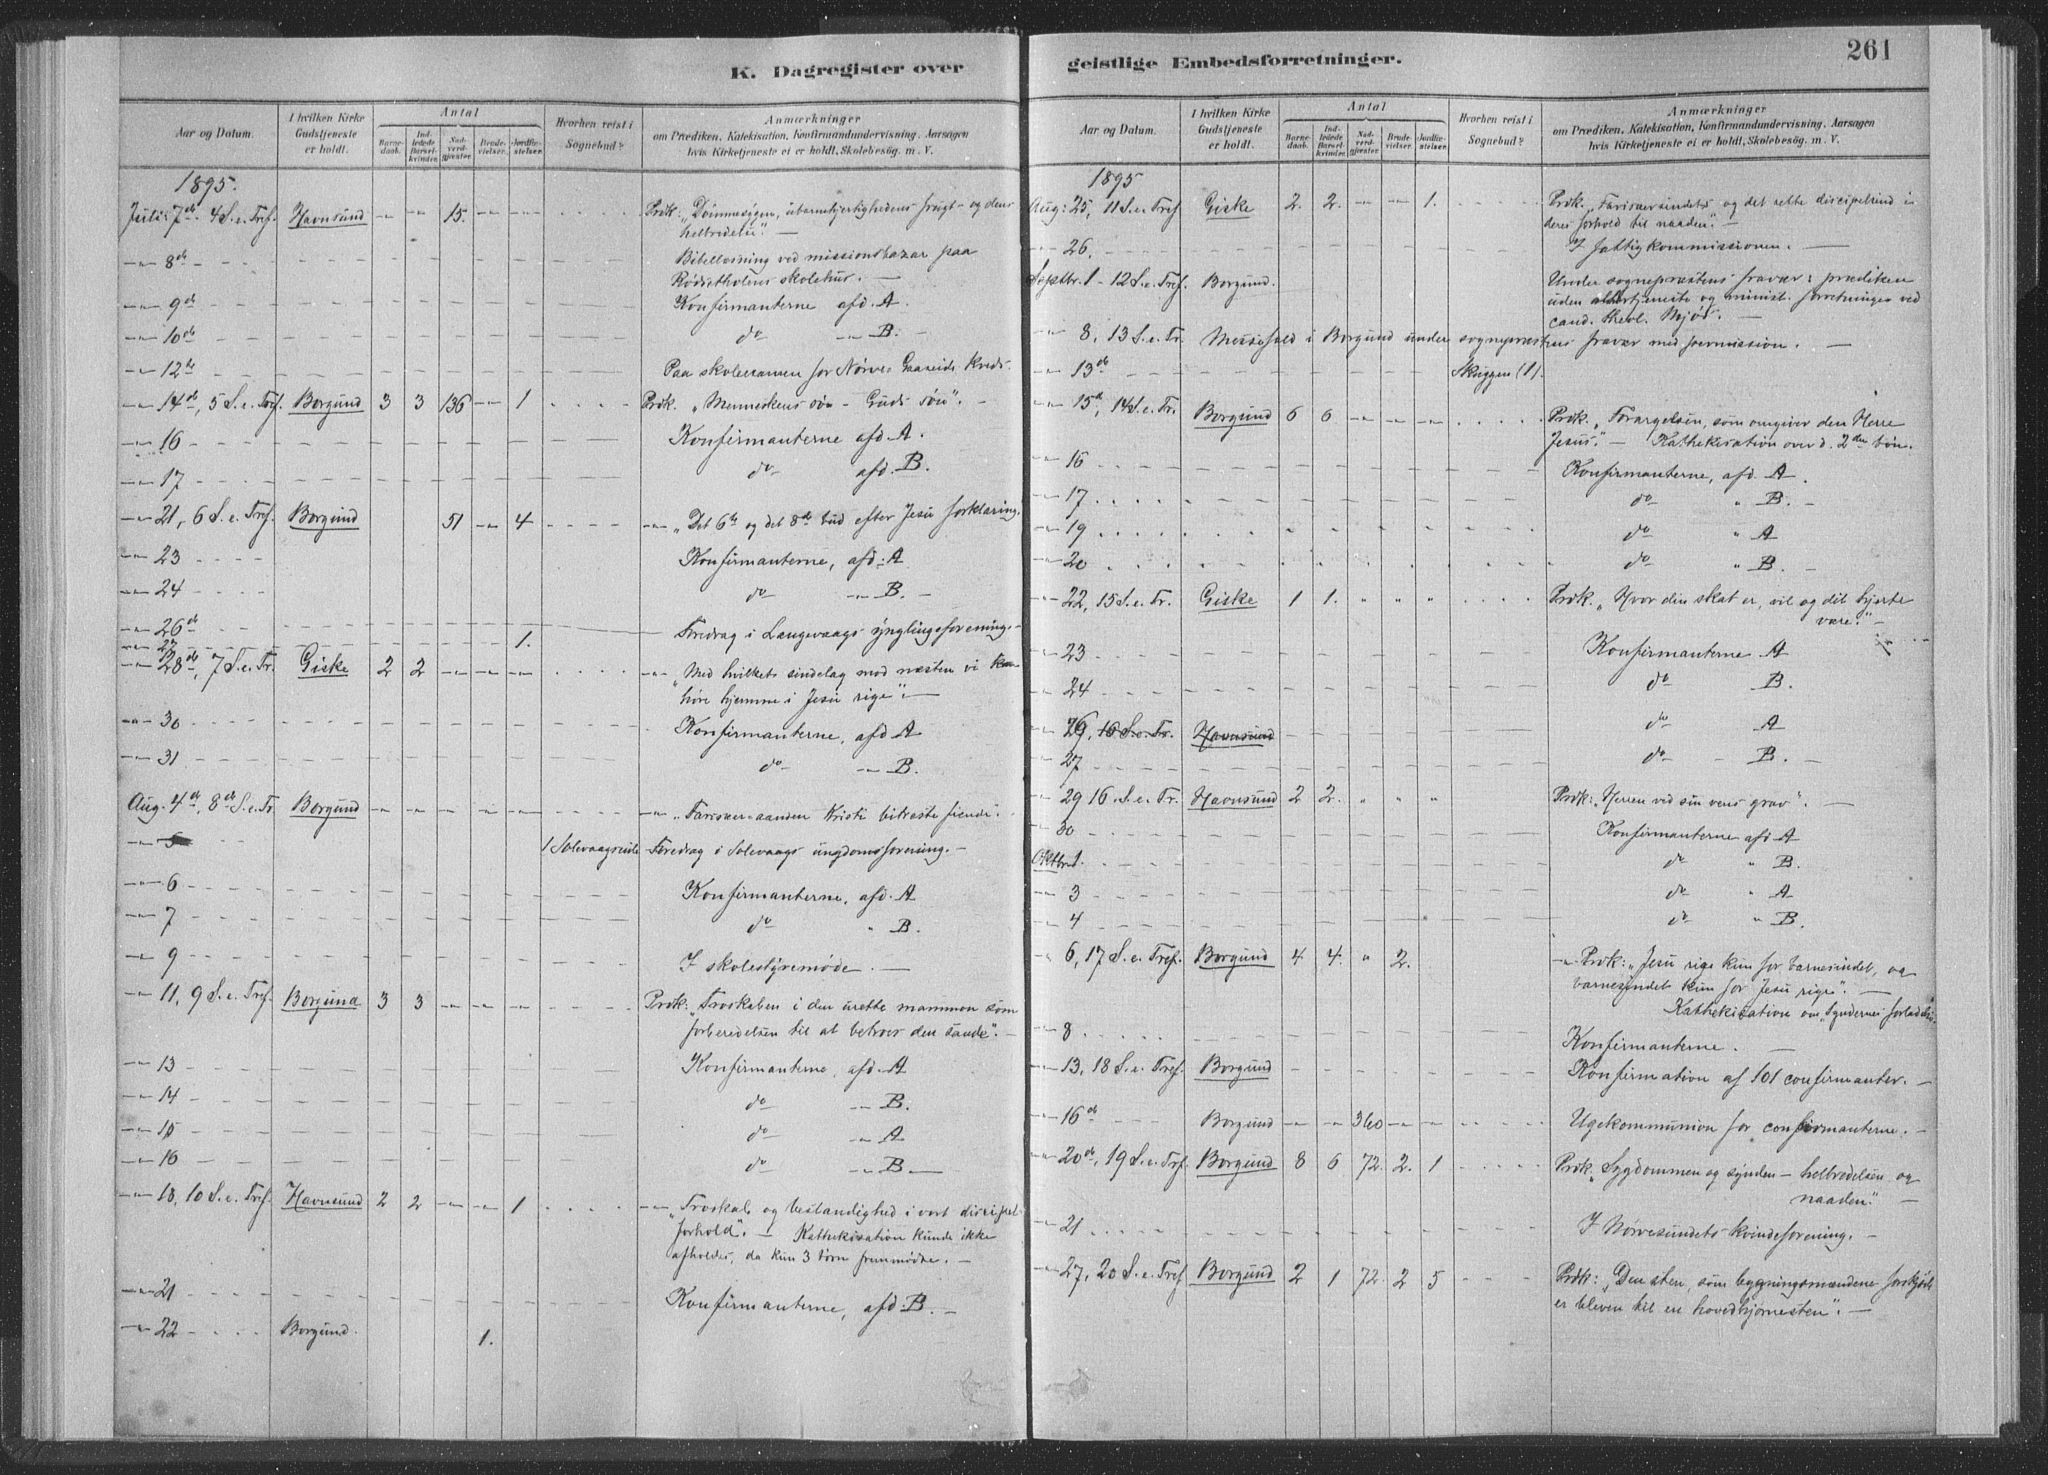 K. Dagregister over
Aar og Datum. I hvilken Kirke Gudstjeneste er holdt. Antal Barnedaab. Indledede Barselkvinder. Nadverdgjester. Brudevielser. Jordfæstelser. Hvorhen reist i Sognebud? Anmærkninger om Prædiken, Katekisation, Konfirmandundervisning, Aarsagen hvis Kirketjeneste ei er holdt, Skolebesøg. m. V.
1895.
Juli: 7de 4 S. e. Tref. Havnsund -"- -"- 15. -"- -"- Prdk: "Dømmesygen, ubarmhjertighedens frugt - og dens
helbredelse". -
-"- 8de Bibellæsning ved missionsbazar paa
skolehus. -
-"- 9de Konfirmanterne afd. A.
-"- 10de do -"- B. -
-"- 12te Paa skoleexamen for Nørve Gaaseide Kreds.
-"- 14de, 5 S. e. Tref. Borgund 3 3 136 -"- 1 Prdk. "Menneskens søn - Guds søn". -
-"- 16 Konfirmanterne afd. A.
-"- 17 do afd. B.
-"- 21, 6 S. e. Tref. Borgund 51 -"- 4 -"- "Det 6te og det 8de bud efter Jesu forklaring.
-"- 23 Konfirmanterne, afd. A
-"- 24 do -"- B. -
-"- 26de Foredrag i Langevaags ynglingeforening. -
-"- 27 1.
-"- 28de, 7 S. e. Tr. Giske 2 2 -"- -"- -"- -"- "Med hvilket sindelag mod næsten vi kan
høre hjemme i Jesu rige". -
-"- 30 Konfirmanterne, afd A
-"- 31 do -"- B.
Aug. 4de, 8de S. e. Tr. Borgund -"- -"- -"- -"- -"- -"- "Farisæer-aanden Kristi bitreste fiende".
-"- 5 1 Solevaagseide Foredrag i Solevaags ungdomsforening. -
-"- 6 Konfirmanterne, afd. A
-"- 7 do " B.
-"- 9 I skolestyremøde. -
-"- 11, 9 S. e. Tref. Borgund 3 3 -"- -"- -"- Prdk: "Troskaben i den urette mammon som
forberedelsen til at betroes den sande". -
-"- 13 Konfirmanterne, afd. A
-"- 14 do -"- B.
-"- 15 do -"- A
-"- 16 do -"- B. -
-"- 18, 10 S. e. Tref. Havnsund 2 2 -"- -"- 1 -"- "Troskab og bestandighed i vort discipel-
forhold". - Kathekisation kunde ikke
afholdes, da kun 3 børn fremmødte. -
-"- 21 Konfirmanterne, afd. B. -
-"- 22 Borgund. 1.
geistlige Embedsforretninger.
261
Aar og Datum. I hvilken Kirke Gudstjeneste er holdt. Antal Barnedaab. Indledede Barselkvinder. Nadverdgjester. Brudevielser. Jordfæstelser. Hvorhen reist i Sognebud? Anmærkninger om Prædiken, Katekisation, Konfirmandundervisning, Aarsagen hvis Kirketjeneste ei er holdt, Skolebesøg. m. V.
1895
Aug: 25, 11 S. e. Tref. Giske 2. 2. -"- -"- 1. Prdk. "Farisæersindets og det rette discipelsind i
deres forhold til naaden". -
-"- 26. I fattigkommissionen. -
Septbr. 1 - 12 S. e. Tref. Borgund. Under sognepræstens fravær: prædiken
uden altertjeneste og minist. forretninger ved
cand. theol. Mjød. -
-"- 8, 13 S. e. Tr. Messefald i Borgund under sognepræstens fravær med permission. -
-"- 13de Skuggen (1).
-"- 15de, 14 S. e. Tr. Borgund 6 6 -"- -"- -"- Prdk. "Forargelsen, som omgiver den Herre
Jesus". - Kathekisation over d. 2den bøn.
-"- 16 Konfirmanterne, afd. A.
-"- 17 do " B. -
-"- 19 do " A
-"- 20 do " B. -
-"- 22, 15 S. e. Tr. Giske 1 1. " " " Prdk. "Hvor din skat er, vil og dit hjerte
være". -
-"- 23 Konfirmanterne A
-"- 24 do B.
-"- 26, 16 S. e. Tr. Havnsund do A
-"- 27 do B. -
-"- 29 16. S. e. Tr. Havnsund 2 2. " " " Prdk: "Herren ved sin vens grav". -
-"- 30 Konfirmanterne afd. A
Oktbr. 1. do " B.
-"- 3 do " A
-"- 4 do " B.
" 6, 17 S. e. Tref. Borgund 4 4. " 2. -"- Prdk: "Jesu rige kun for barnesindet, og
barnesindet kun for Jesu rige". -
Kathekisation om "Syndernes forladelse.
-"- 8 Konfirmanterne. -
-"- 13, 18 S. e. Tref. Borgund Konfirmation af 101 confirmanter. -
-"- 16de Borgund -"- -"- 360 -"- -"- Ugekommunion for confirmanterne. -
-"- 20de, 19 S. e. Tref. Borgund 8 6 72. 2. 1 Prdk. "Sygdommen og synden - helbredelsen og
naaden". -
-"- 21 I Nørvesundets kvindeforening. -
-"- 27, 20 S. e. Tref. Borgund 2 1 72. 2 5 Prdk: "Den sten, som bygningsmændene forskjød,
er bleven til en hovedhjørnesten". -